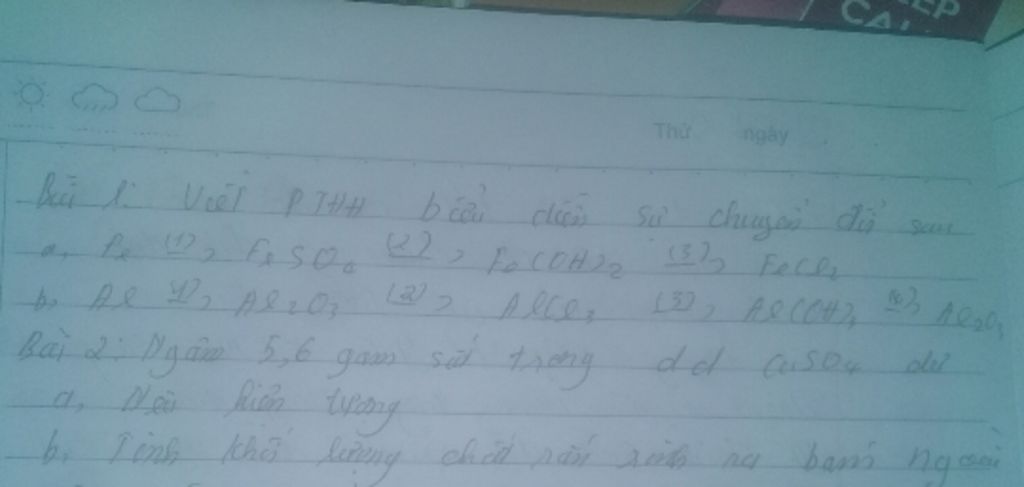 EP
CA
Thứ ngày
Bài 1: Viết PTHH biểu diễn sự chuyển đổi sau
a, Fe (1)> FeSO4 (2)> Fe(OH)2 (3)> FeCl2
b, Al (1)> Al2O3 (2)> AlCl3 (3)> Al(OH)3 (4)> Al2O3
Bài 2: Ngâm 5,6 gam sắt trong dd CuSO4 dư
a, Nêu hiện tượng
b, Tính khối lượng chất rắn sinh ra bám ngoài